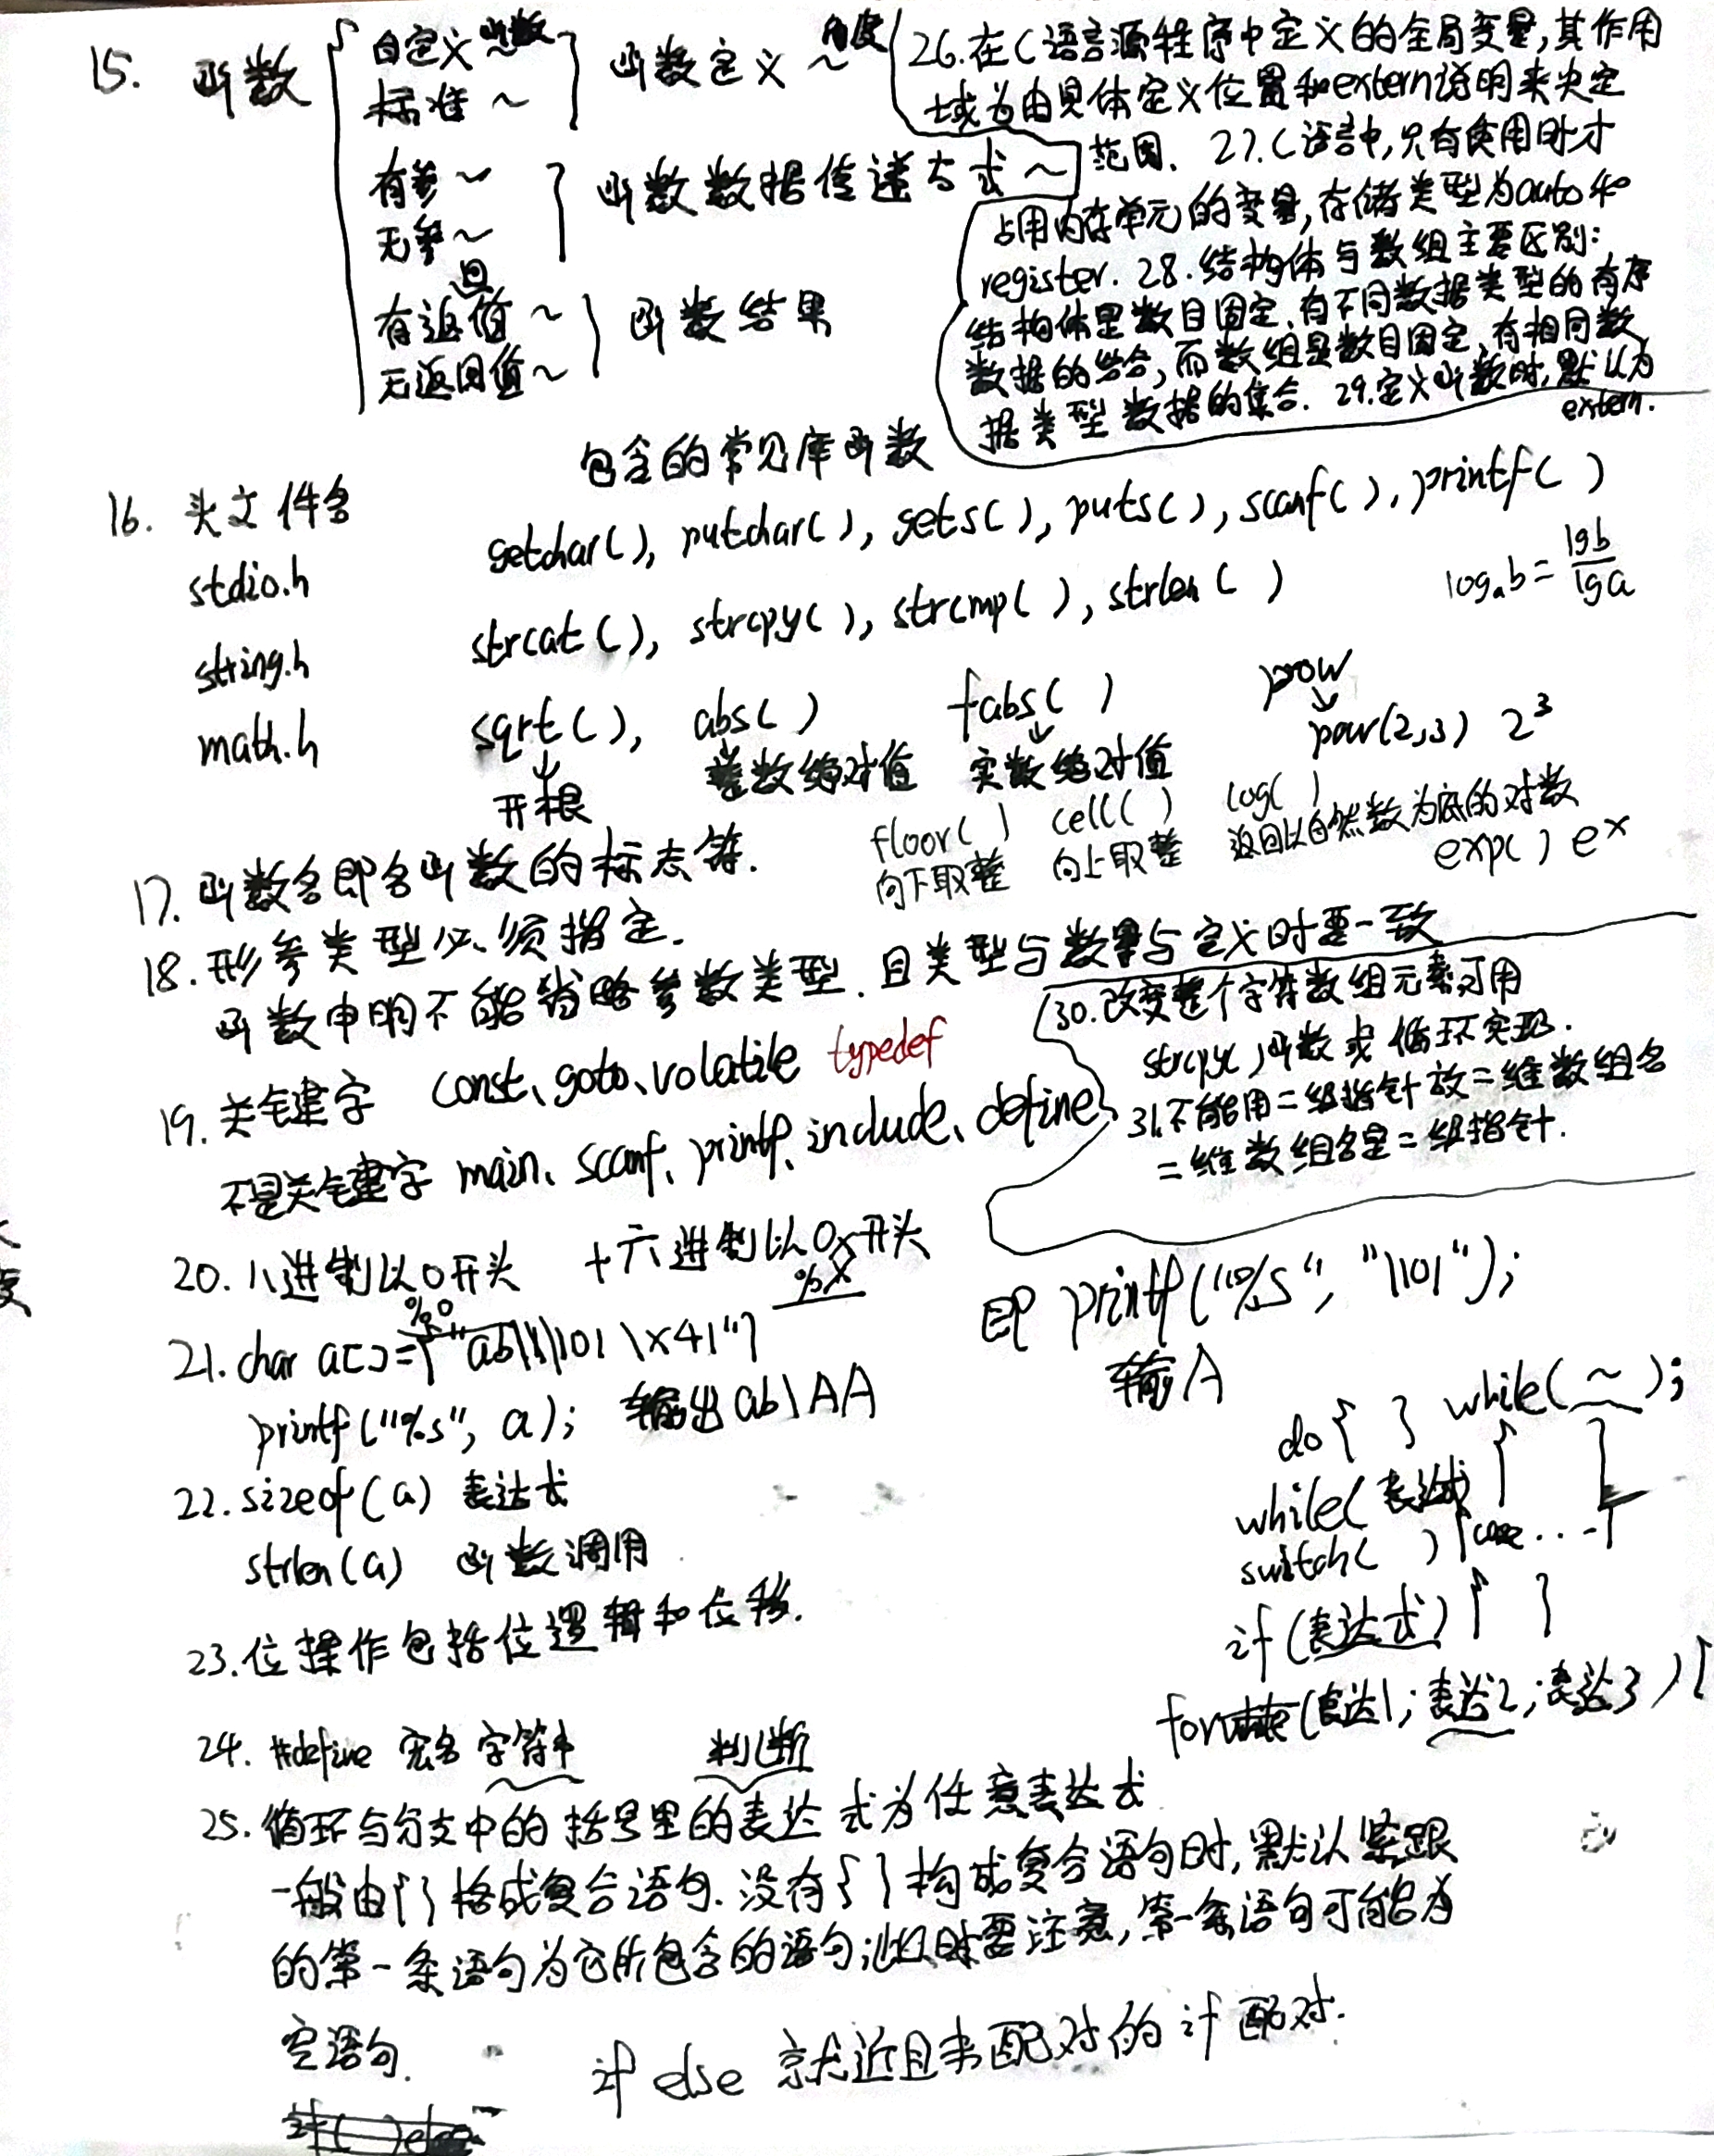 15. 函数
自定义函数
标准~
函数定义~角度
有参~
无参~
函数数据传递方式~
有返回值~
无返回值~
函数结果
26.在C语言源程序中定义的全局变量,其作用
域为由具体定义位置和extern说明来决定
范围. 27.C语言中,只有使用时才
占用内存单元的变量,存储类型为auto和
register. 28.结构体与数组主要区别:
结构体是数目固定,有不同数据类型的有序
数据的结合,而数组是数目固定,有相同数
据类型数据的集合. 29.定义函数时,默认为
extern.
16. 头文件名 包含的常见库函数
stdio.h getchar(), putchar(), gets(), puts(), scanf(), printf( )
string.h strcat(), strcpy(), strcmp( ), strlen( )
logab=lgb/lga
math.h sqrt(), abs( ) fabs( ) pow
开根 整数绝对值 实数绝对值 pow(2,3) 2³
floor( ) cell( ) log( )
向下取整 向上取整 返回以自然数为底的对数
exp( ) eˣ
17. 函数名即名函数的标志符.
18. 形参类型必须指定.
函数申明不能省略参数类型.且类型与数量与定义时要一致
19. 关键字 const、goto、volatile typedef
不是关键字 main、scanf、printf、include、define
30.改变整个字符数组元素可用
strcpy( )函数或循环实现.
31.不能用二级指针放二维数组名
二维数组名是二级指针.
20.八进制以0开头 十六进制以0x开头
%o %x
21. char a[]={"ab\\\101\x41"}
printf("%s", a); 输出ab\AA
即 printf("%s", "\101");
输A
22. sizeof(a) 表达式
strlen(a) 函数调用
23.位操作包括位逻辑和位移.
do{ } while( ~ );
while(表达式) { }
switch( ) {case ... }
if (表达式) { }
for(表达1;表达2;表达3) {
24. #define 宏名 字符串 判断
25. 循环与分支中的括号里的表达式为任意表达式
一般由{}构成复合语句.没有{ }构成复合语句时,默认紧跟
的第一条语句为它所包含的语句,此时要注意,第一条语句可能为
空语句.
if else 就近且未配对的if配对.